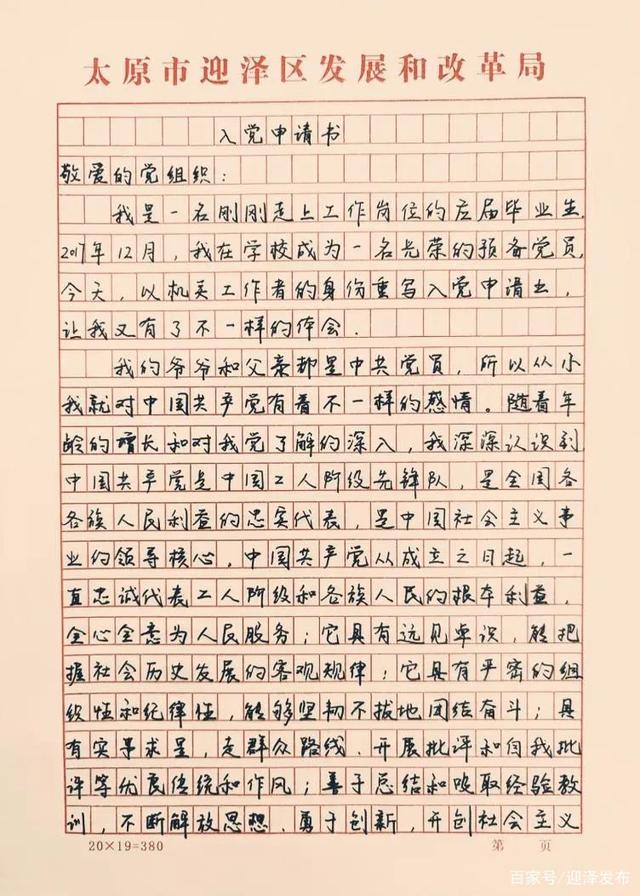 太原市迎泽区发展和改革局
入党申请书
敬爱的党组织：
我是一名刚刚走上工作岗位的应届毕业生，
2017年12月，我在学校成为一名光荣的预备党员，
今天，以机关工作者的身份重写入党申请书，
让我又有了不一样的体会．
我的爷爷和父亲都是中共党员，所以从小
我就对中国共产党有着不一样的感情。随着年
龄的增长和对我党了解的深入，我深深认识到，
中国共产党是中国工人阶级先锋队，是全国各
各族人民利益的忠实代表，是中国社会主义事
业的领导核心，中国共产党从成立之日起，一
直忠诚代表工人阶级和各族人民的根本利益，
全心全意为人民服务；它具有远见卓识，能把
握社会历史发展的客观规律；它具有严密的组
织性和纪律性，能够坚韧不拔地团结奋斗；具
有实事求是，走群众路线，开展批评和自我批
评等优良传统和作风；善于总结和吸取经验教
训，不断解放思想，勇于创新，开创社会主义
20×19=380 第 页
百家号/迎泽发布